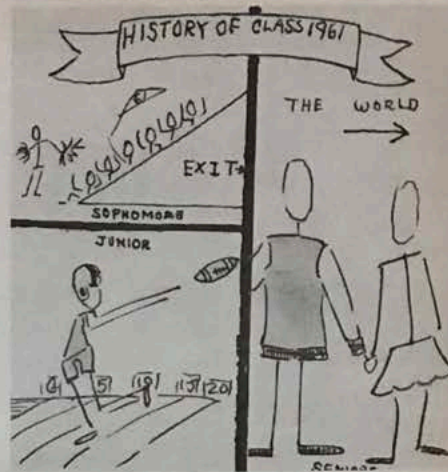 HISTORY OF CLASS 1961
THE WORLD
EXIT
SOPHOMORE
JUNIOR
5 10 15 20
SENIORS